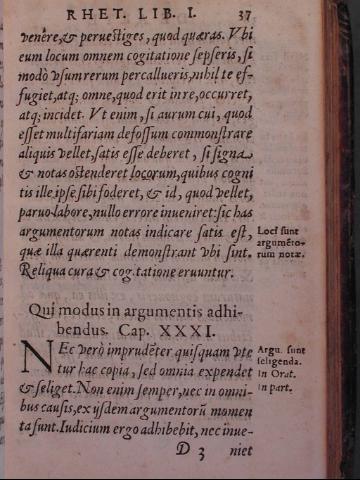 RHET. LIB. I. 37
venêre, & peruestiges, quod quæras. Vbi
eum locum omnem cogitatione sepseris, si
modò vsum rerum percallueris, nihil te ef-
fugiet, atq; omne, quod erit in re, occurret,
atq; incidet. Vt enim, si aurum cui, quod
esset multifariam defossum commonstrare
aliquis vellet, satis esse deberet, si signa
& notas ostenderet locorum, quibus cogni
tis ille ipse sibi foderet, & id, quod vellet,
paruo labore, nullo errore inueniret: sic has
argumentorum notas indicare satis est,
quæ illa quærenti demonstrant vbi sint.
Reliqua cura & cogitatione eruuntur.
Loci sunt
argumēto-
rum notæ.
Qui modus in argumentis adhi-
bendus. Cap. XXXI.
NEc verò imprudēter quisquam vte
tur hac copia, sed omnia expendet
& seliget. Non enim semper, nec in omni-
bus causis, ex ijsdem argumentorū momen
ta sunt. Iudicium ergo adhibebit, nec inue-
Argu. sunt
seligenda.
in Orat.
in part.
D 3 niet